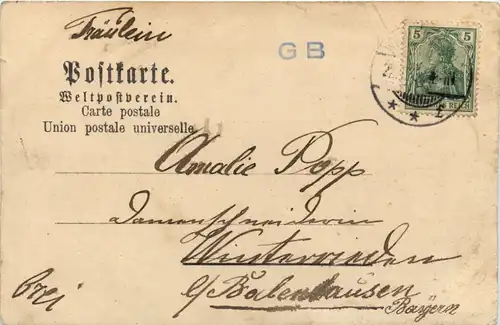 Fräulein
GB
5 5
REICH
Postkarte.
Weltpostverein.
Carte postale
Union postale universelle
Amalie Popp
Damenschneiderin
Winterrieden
b/Babenhausen
Bayern